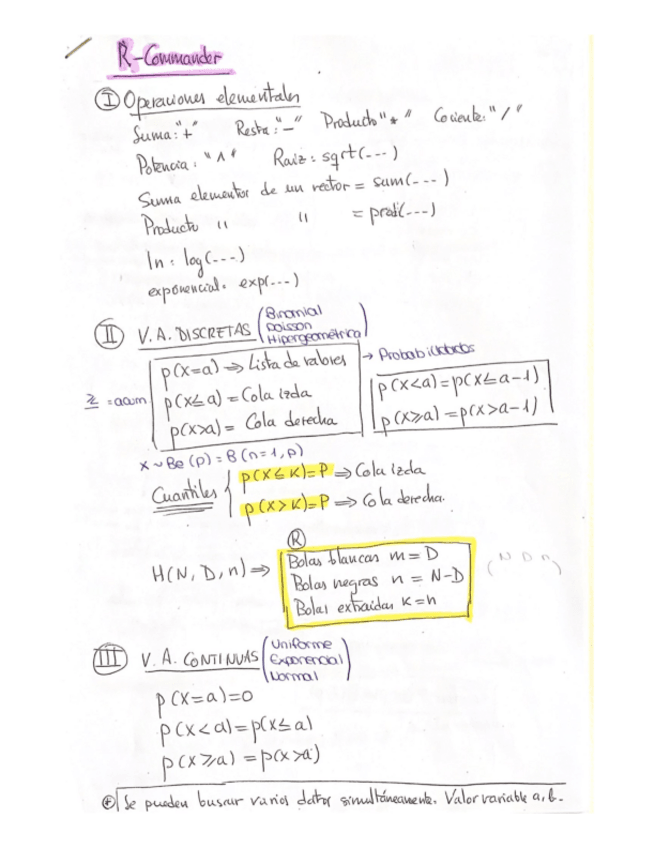 R-Commander
I Operaciones elementales
Suma: "+" Resta: "-" Producto "*" Cociente: "/"
Potencia: "^" Raiz: sqrt(---)
Suma elementos de un vector = sum(---)
Producto " " = prod(---)
ln: log(---)
exponencial: exp(---)
II V.A. DISCRETAS (Binomial
Poisson
Hipergeométrica)
p(X=a) ⇒ Lista de valores
p(X≤a) = Cola izda
p(X>a) = Cola derecha
→ Probabilidades
p(X<a)=p(X≤a-1)
p(X≥a)=p(X>a-1)
X~Be(p)=B(n=1,p)
Cuantiles
p(X≤K)=P ⇒ Cola izda
p(X>K)=P ⇒ Cola derecha.
R
H(N, D, n) ⇒
Bolas blancas m = D
Bolas negras n = N-D
Bolas extraidas K = n
(N D n)
III V.A. CONTINUAS (Uniforme
Exponencial
Normal)
p(X=a)=0
p(X<a)=p(X≤a)
p(X≥a)=p(X>a)
Se pueden buscar varios datos simultáneamente. Valor variable a, b.